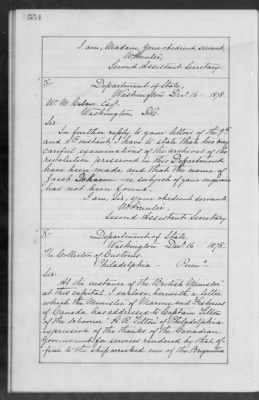 554
I am, Madam, your obedient servant,
W Hunter,
Second Assistant Secretary.
Department of State,
Washington Dec. 16 - 1878.
Wm. M. Esqr.
Washington D.C.
Sir.
In further reply to your letters of the 9th
and 11th instant. I have to state that two very
careful examinations of the archives of the
revolution preserved in this Department
have been made, and that the name of
Jacob the subject of your enquiries
has not been found.
I am, Sir, your obedient servant
W Hunter.
Second Assistant Secretary
Department of State,
Washington Decr. 16 1878.
The Collector of Customs,
Philadelphia - Penna.
Sir:
At the instance of the British Minister
at this capital, I enclose herewith a letter
which the Minister of Marine and Fisheries
of Canada, has addressed to Captain Tilton
of the Schooner "H. B. Tilton" of Philadelphia
expressive of the thanks of the Canadian
Government for services rendered by that of-
ficer to the shipwrecked crew of the Brigantine